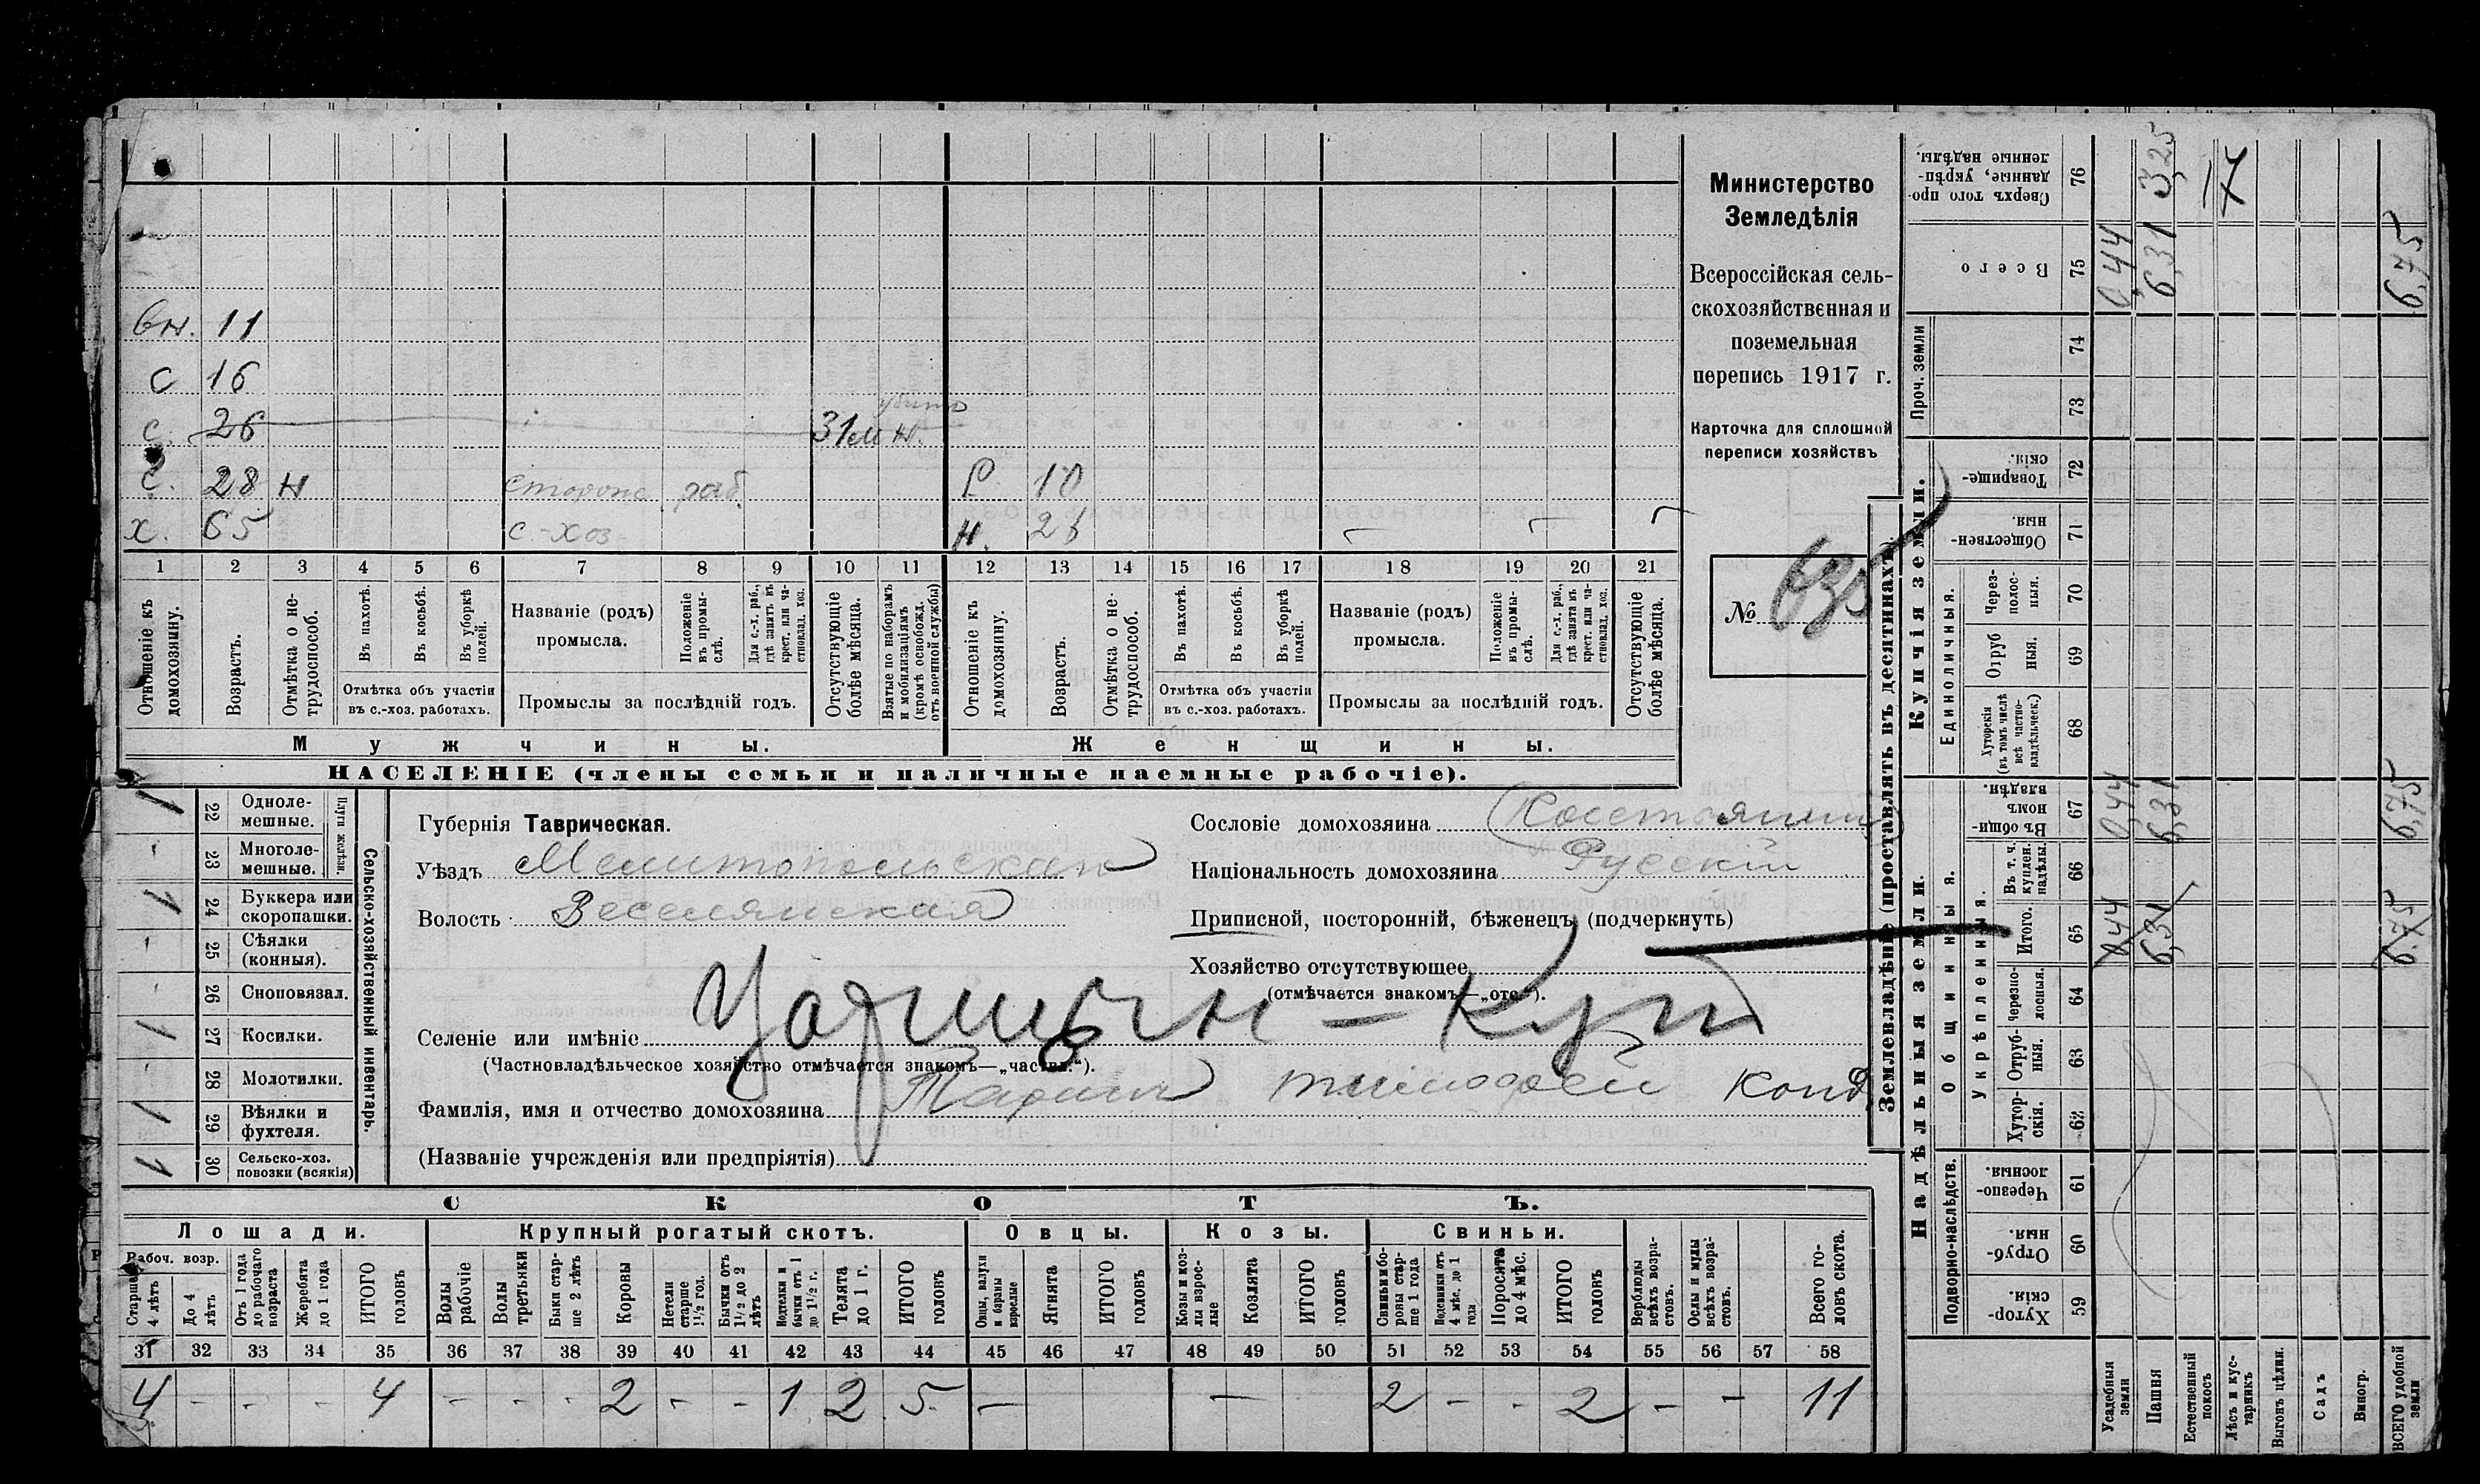 Министерство
Земледѣлія
Всероссійская сель-
скохозяйственная и
поземельная
перепись 1917 г.
Карточка для сплошной
переписи хозяйствъ
№ 635
вн. 11
с 16
убитъ
с. 26 31 м н.
с. 28 н сторонн. раб. Р. 10
х. 65 с.-хоз. н. 26
1 2 3 4 5 6 7 8 9 10 11 12 13 14 15 16 17 18 19 20 21
Отношеніе къ домохозяину.
Возрастъ.
Отмѣтка о не-трудоспособ.
Въ пахотѣ.
Въ косьбѣ.
Въ уборкѣ полей.
Отмѣтка объ участіи
въ с.-хоз. работахъ.
Названіе (родъ)
промысла.
Положеніе въ промы-слѣ.
Для с.-х. раб., гдѣ занятъ въ крест. или ча-стновлад. хоз.
Промыслы за послѣдній годъ.
Отсутствующіе болѣе мѣсяца.
Взятые по наборамъ и мобилизаціямъ (кромѣ освобожд. отъ военной службы)
Отношеніе къ домохозяину.
Возрастъ.
Отмѣтка о не-трудоспособ.
Въ пахотѣ.
Въ косьбѣ.
Въ уборкѣ полей.
Отмѣтка объ участіи
въ с.-хоз. работахъ.
Названіе (родъ)
промысла.
Положеніе въ промы-слѣ.
Для с.-х. раб., гдѣ занята въ крест. или ча-стновлад. хоз.
Промыслы за послѣдній годъ.
Отсутствующіе болѣе мѣсяца.
Мужчины. Женщины.
НАСЕЛЕНІЕ (члены семьи и наличные наемные рабочіе).
Сельско-хозяйственный инвентарь.
Плуги желѣзн.
1 22 Одноле-мешные.
- 23 Многоле-мешные.
1 24 Буккера или скоропашки.
- 25 Сѣялки (конныя).
- 26 Сноповязал.
1 27 Косилки.
- 28 Молотилки.
1 29 Вѣялки и фухтеля.
1 30 Сельско-хоз. повозки (всякія)
Губернія Таврическая.
Уѣздъ Мелитопольскій
Волость Веселянская
Сословіе домохозяина Крестьянин
Національность домохозяина Русскій
Приписной, посторонній, бѣженецъ (подчеркнуть)
Хозяйство отсутствующее
(отмѣчается знакомъ—„отс.“).
Селеніе или имѣніе Царицын-Кут
(Частновладѣльческое хозяйство отмѣчается знакомъ—„частн.“).
Фамилія, имя и отчество домохозяина Тимофей Конд
(Названіе учрежденія или предпріятія)
СКОТЪ.
Лошади. Крупный рогатый скотъ. Овцы. Козы. Свиньи.
Рабоч. возр.
Старше 4 лѣтъ
До 4 лѣтъ
Отъ 1 года до рабочаго возраста
Жеребята до 1 года
ИТОГО головъ
Волы рабочіе
Волы третьяки
Быки стар-ше 2 лѣтъ
Коровы
Нетели старше 1½ год.
Бычки отъ 1½ до 2 лѣтъ
Нетелки и бычки отъ 1 до 1½ г.
Телята до 1 г.
ИТОГО головъ
Овцы, валухи и бараны взрослые
Ягнята
ИТОГО головъ
Козы и коз-лы взрос-лые
Козлята
ИТОГО головъ
Свиньи и бо-ровы стар-ше 1 года
Подсвинки отъ 4 мѣс. до 1 года
Поросята до 4 мѣс.
ИТОГО головъ
Верблюды всѣхъ возра-стовъ.
Ослы и мулы всѣхъ возра-стовъ.
Всего го-ловъ скота.
31 32 33 34 35 36 37 38 39 40 41 42 43 44 45 46 47 48 49 50 51 52 53 54 55 56 57 58
4 - - - 4 - - - 2 - - 1 2 5 - - 2 - - 2 - - 11
Землевладѣніе (проставлять въ десятинахъ).
Надѣльныя земли. Купчія земли. Проч. земли
Подворно-наслѣдств. Общинныя. Укрѣпленныя. Единоличныя.
Хутор-скія. 59
Отруб-ныя. 60
Черезпо-лосныя. 61
Хутор-скія. 62
Отруб-ныя. 63
Черезпо-лосныя. 64
Итого. 65 0,44 6,31 6,75
Въ т. ч. куплен. надѣлы. 66
Въ общи-номъ владѣн. 67 0,44 6,31 6,75
Хуторскія (въ томъ числѣ всѣ частно-владѣльческ.) 68
Отруб ныя. 69
Через-полос-ныя. 70
Обществен-ныя. 71
Товарище-скія. 72
73
74
Всего 75 0,44 6,31 6,75
Сверхъ того про-данные, укрѣп-ленные надѣлы. 76 3,25 17
Усадебныя земли
Пашня
Естественный покосъ
Лѣсъ и кус-тарникъ
Выгонъ цѣлин.
Садъ
Виногр.
ВСЕГО удобной земли